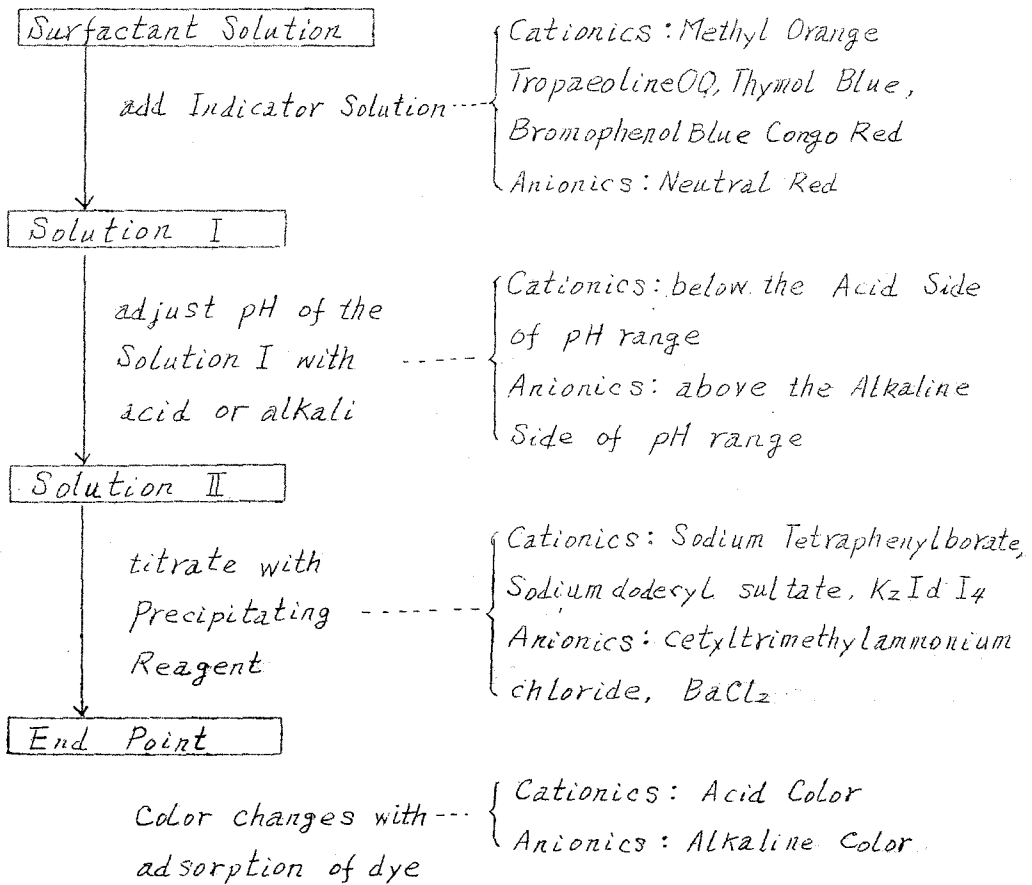 Surfactant Solution
add Indicator Solution
Cationics: Methyl Orange
TropaeolineOO, Thymol Blue,
Bromophenol Blue Congo Red
Anionics: Neutral Red
Solution I
adjust pH of the
Solution I with
acid or alkali
Cationics: below the Acid Side
of pH range
Anionics: above the Alkaline
Side of pH range
Solution II
titrate with
Precipitating
Reagent
Cationics: Sodium Tetraphenylborate,
Sodium dodecyl sultate, K2 Id I4
Anionics: cetyltrimethylammonium
chloride, BaCl2
End Point
Color changes with
adsorption of dye
Cationics: Acid Color
Anionics: Alkaline Color